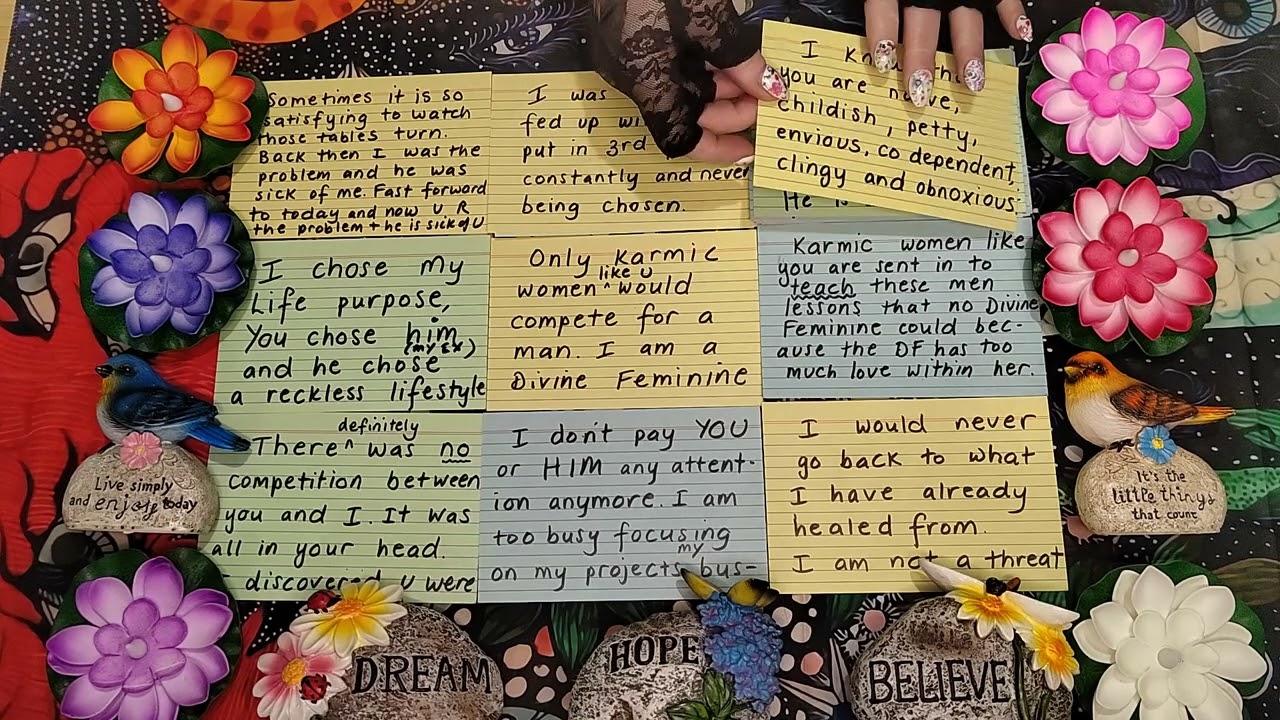 Sometimes it is so
satisfying to watch
those tables turn.
Back then I was the
problem and he was
sick of me. Fast forward
to today and now U R
the problem + he is sick of U
I was
fed up
put in 3rd
constantly and never
being chosen.
I
you are
childish, petty,
envious, co dependent,
clingy and obnoxious
He is
I chose my
Life purpose,
You chose him
(my ex)
and he chose
a reckless lifestyle
Only karmic
like U
women ^ would
compete for a
man. I am a
Divine Feminine
Karmic women like
you are sent in to
teach these men
lessons that no Divine
Feminine could bec-
ause the DF has too
much love within her.
definitely
There ^ was no
competition between
you and I. It was
all in your head.
I discovered U were
I don't pay YOU
or HIM any attent-
ion anymore. I am
too busy focusing
my
on my projects, bus-
I would never
go back to what
I have already
healed from.
I am not a threat
Live simply
and enjoy today
It's the
little things
that count
DREAM
HOPE
BELIEVE